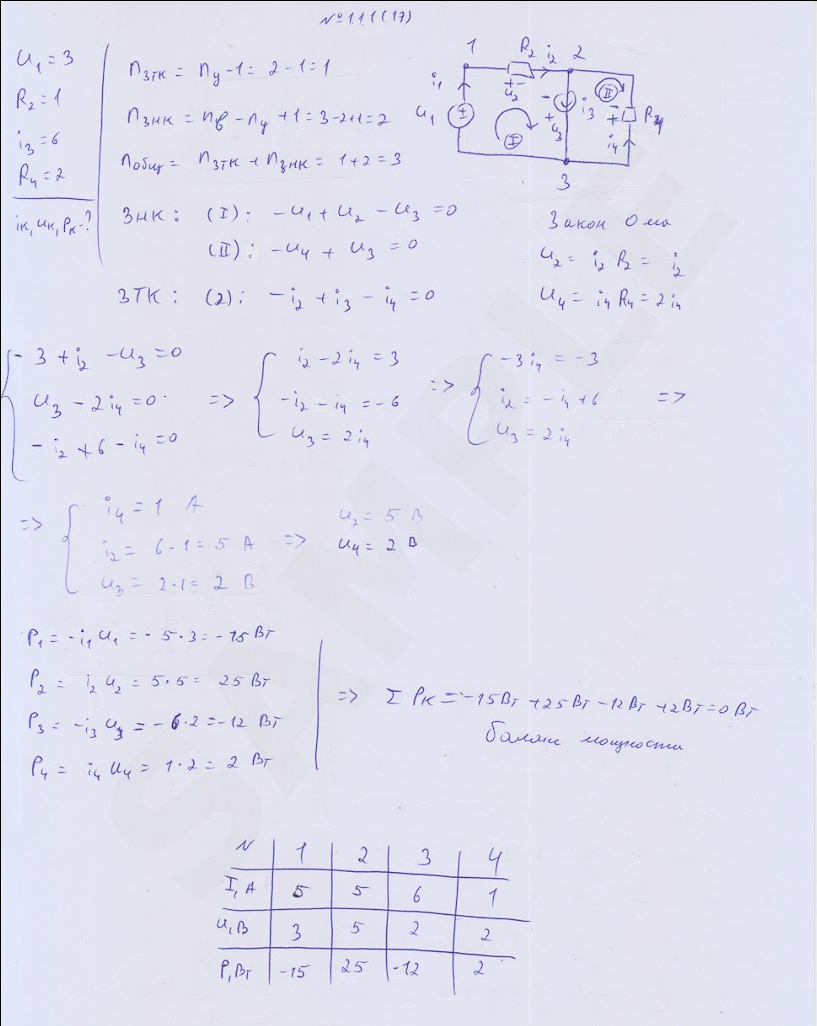 № 1.1.1 (17)
u₁ = 3
R₂ = 1
i₃ = 6
R₄ = 2
iк, uк, pк - ?
nзтк = nу - 1 = 2 - 1 = 1
nзнк = nв - nу + 1 = 3 - 2 + 1 = 2
nобщ = nзтк + nзнк = 1 + 2 = 3
1 R₂ i₂ 2
i₁ + - u₂ II
u₁ I - i₃ + u₃ - + R₄
I i₄
3
ЗНК: (I): -u₁ + u₂ - u₃ = 0
(II): -u₄ + u₃ = 0
ЗТК: (2): -i₂ + i₃ - i₄ = 0
Закон Ома
u₂ = i₂ R₂ = i₂
u₄ = i₄ R₄ = 2i₄
- 3 + i₂ - u₃ = 0
u₃ - 2i₄ = 0
- i₂ + 6 - i₄ = 0
=>
i₂ - 2i₄ = 3
-i₂ - i₄ = -6
u₃ = 2i₄
=>
-3i₄ = -3
i₂ = -i₄ + 6
u₃ = 2i₄
=>
=>
i₄ = 1 А
i₂ = 6 - 1 = 5 А
u₃ = 2·1 = 2 В
=>
u₂ = 5 В
u₄ = 2 В
P₁ = -i₁ u₁ = - 5·3 = -15 Вт
P₂ = i₂ u₂ = 5·5 = 25 Вт
P₃ = -i₃ u₃ = - 6·2 = -12 Вт
P₄ = i₄ u₄ = 1·2 = 2 Вт
=> Σ Pк = -15Вт + 25Вт - 12Вт + 2Вт = 0 Вт
баланс мощности
N 1 2 3 4
I, А 5 5 6 1
u, В 3 5 2 2
P, Вт -15 25 -12 2
SAMPLE